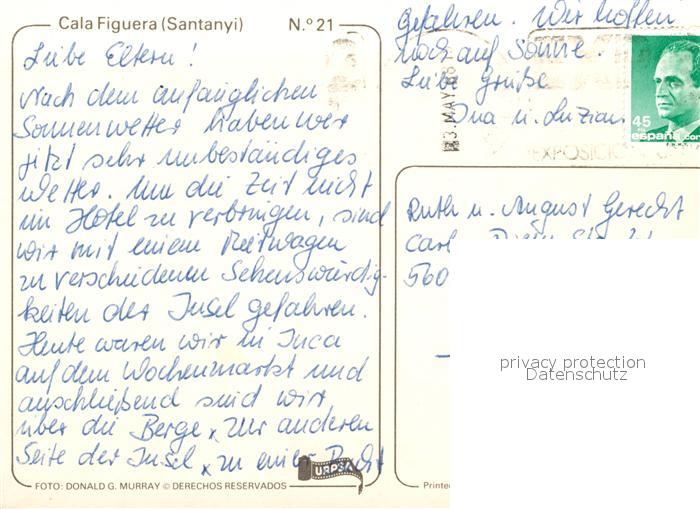 Cala Figuera (Santanyi) N.º 21
Liebe Eltern!
Nach dem anfänglichen
Sonnenwetter haben wir
jetzt sehr unbeständiges
Wetter. Um die Zeit nicht
im Hotel zu verbringen, sind
wir mit einem Mietwagen
zu verschiedenen Sehenswürdig-
keiten der Insel gefahren.
Heute waren wir in Inca
auf dem Wochenmarkt und
anschließend sind wir
über die Berge x zur anderen
Seite der Insel x zu einer Bucht
gefahren. Wir hoffen
noch auf Sonne.
Liebe Grüße
Ina u. Luzian
3. MAY
EXPOSICI
45
PTA
españa
correos
Ruth u. August Gerecht
Carl
560
privacy protection
Datenschutz
FOTO: DONALD G. MURRAY © DERECHOS RESERVADOS
Printe